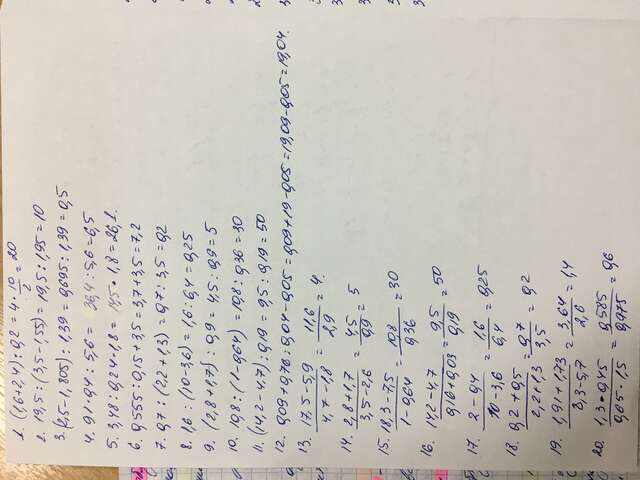 1. (1,6+2,4) : 0,2 = 4 · 10/2 = 20
2. 19,5 : (3,5-1,55) = 19,5 : 1,95 = 10
3. (2,5-1,805) : 1,39 = 0,695 : 1,39 = 0,5
4. 91 · 0,4 : 5,6 = 36,4 : 5,6 = 6,5
5. 3,48 : 0,24 · 1,8 = 14,5 · 1,8 = 26,1.
6. 0,555 : 0,15 + 3,5 = 3,7 + 3,5 = 7,2
7. 0,7 : (2,2+1,3) = 0,7 : 3,5 = 0,2
8. 1,6 : (10-3,6) = 1,6 : 6,4 = 0,25
9. (2,8+1,7) : 0,9 = 4,5 : 0,9 = 5
10. 10,8 : (1-0,64) = 10,8 : 0,36 = 30
11. (14,2-4,7) : 0,19 = 9,5 : 0,19 = 50
12. 0,09+0,76 : 0,04-0,05 = 0,09+19-0,05 = 19,09-0,05 = 19,04.
13. 17,5-5,9 / 4,7-1,8 = 11,6 / 2,9 = 4.
14. 2,8+1,7 / 3,5-2,6 = 4,5 / 0,9 = 5
15. 18,3-7,5 / 1-0,64 = 10,8 / 0,36 = 30
16. 14,2-4,7 / 0,16+0,03 = 9,5 / 0,19 = 50
17. 2-0,4 / 10-3,6 = 1,6 / 6,4 = 0,25
18. 0,2+0,5 / 2,2+1,3 = 0,7 / 3,5 = 0,2
19. 1,91+1,73 / 8,3-5,7 = 3,64 / 2,6 = 1,4
20. 1,3·0,45 / 0,65·1,5 = 0,585 / 0,975 = 0,6